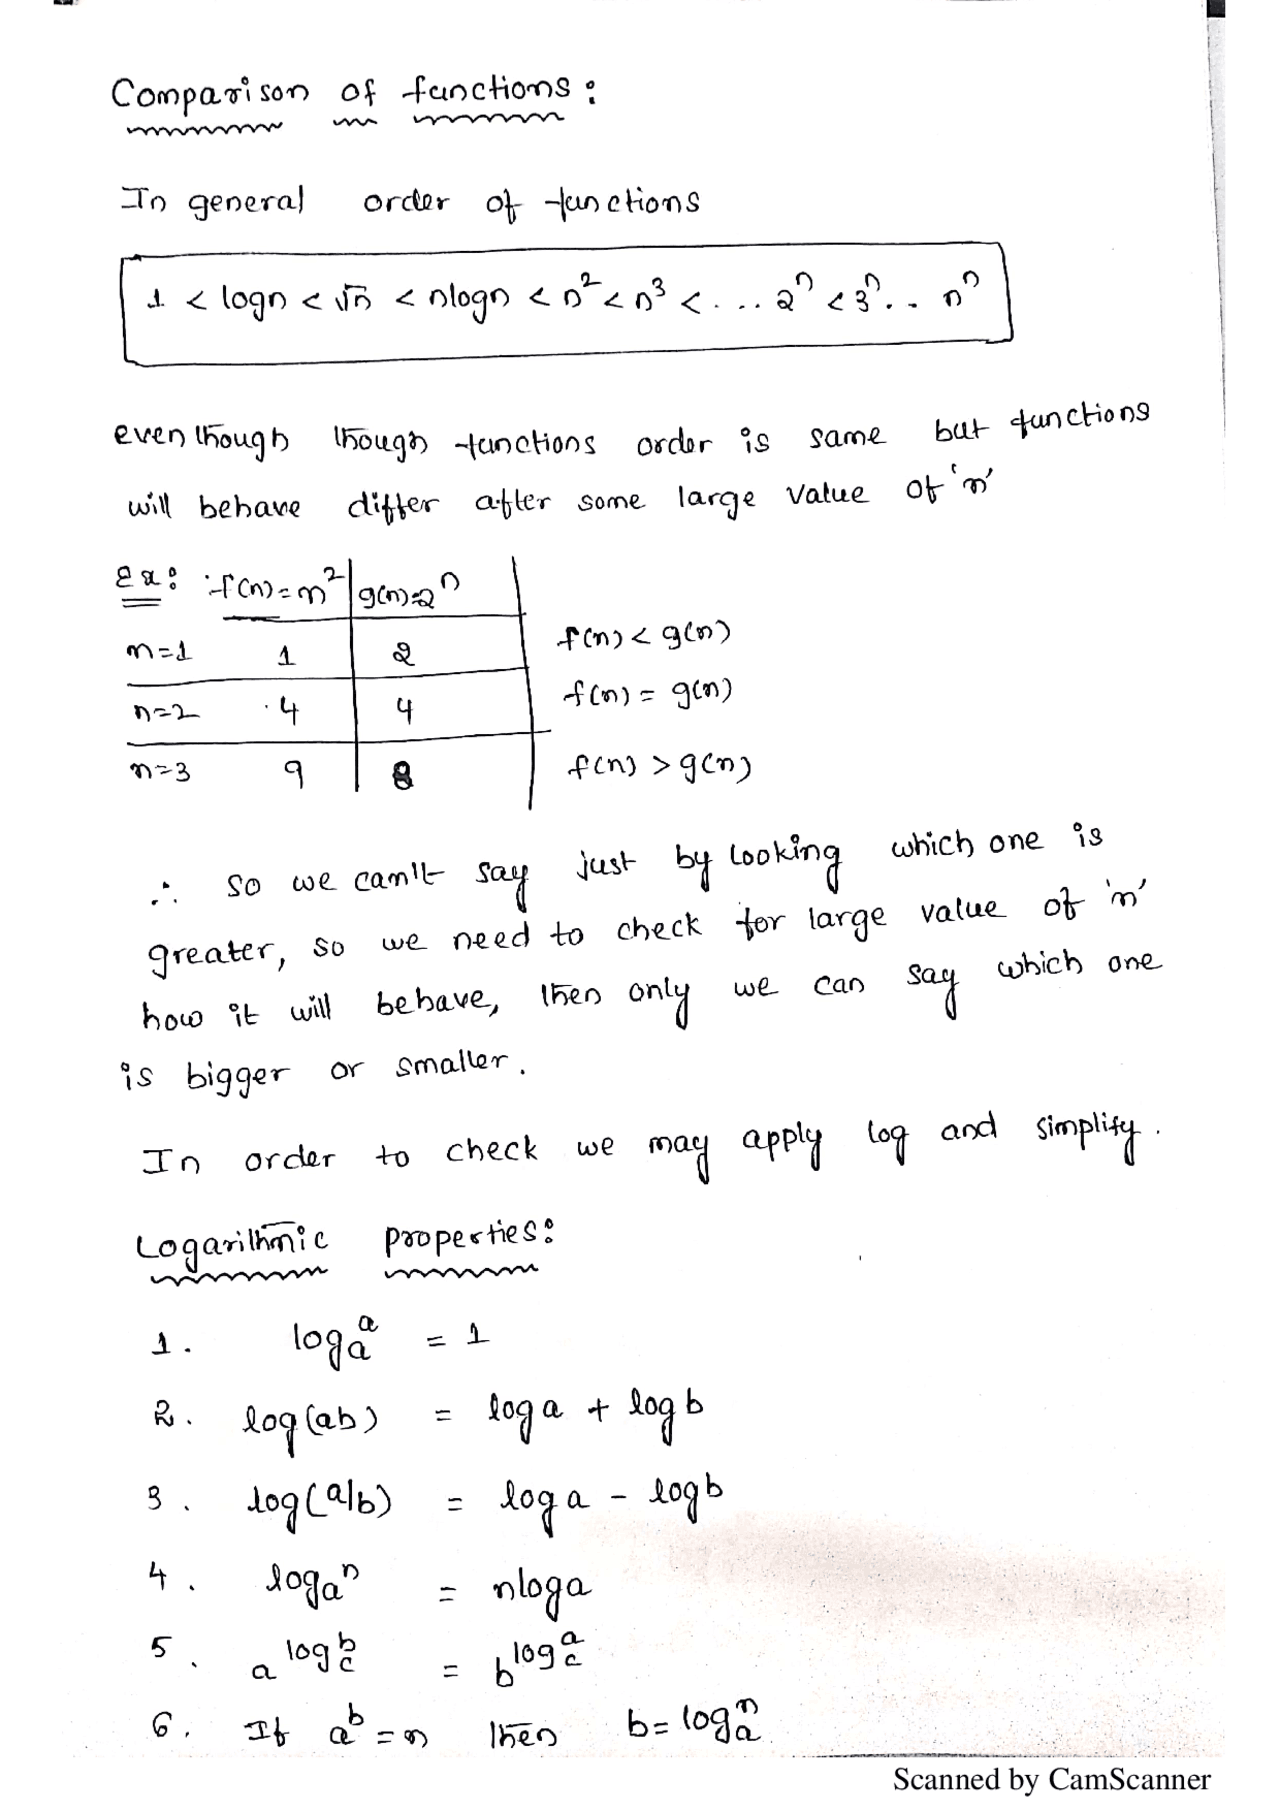 Comparison of functions:
In general order of functions
1 < logn < √n < nlogn < n² < n³ < . . . . 2ⁿ < 3ⁿ . . nⁿ
eventhough though functions order is same but functions
will behave differ after some large value of 'n'
Ex: f(n)=n² g(n)=2ⁿ
n=1 1 2 f(n) < g(n)
n=2 4 4 f(n) = g(n)
n=3 9 8 f(n) > g(n)
∴ so we can't say just by looking which one is
greater, so we need to check for large value of 'n'
how it will behave, then only we can say which one
is bigger or smaller.
In order to check we may apply log and simplify.
Logarithmic properties:
1. logₐᵃ = 1
2. log(ab) = log a + log b
3. log(a/b) = log a - log b
4. log aⁿ = nloga
5. a^(log_c^b) = b^(log_c^a)
6. If a^b = n then b = logₐⁿ
Scanned by CamScanner